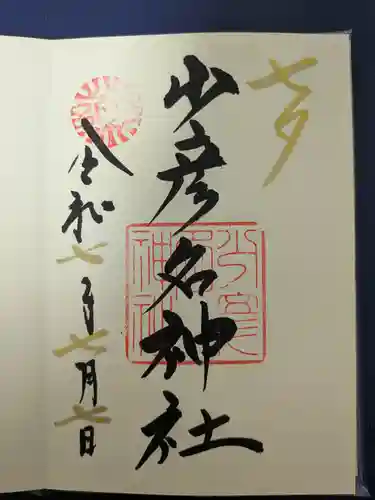 七夕
少彦名神社
令和七年七月七日
少彦名神社